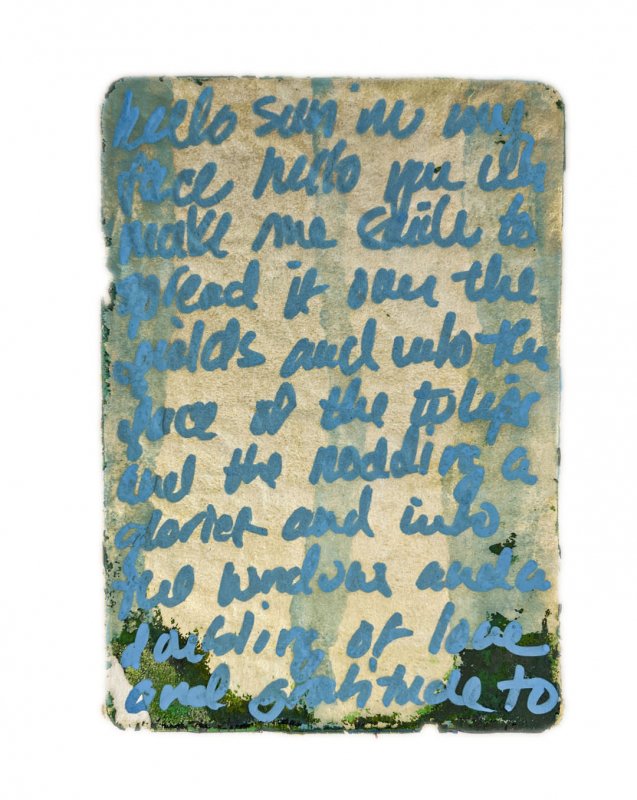 hello sun in my
face hello you who
make me to
spread it over the
fields and into the
face of the tulips
and the nodding a
glories and into
the windows and a
of love
and gratitude to